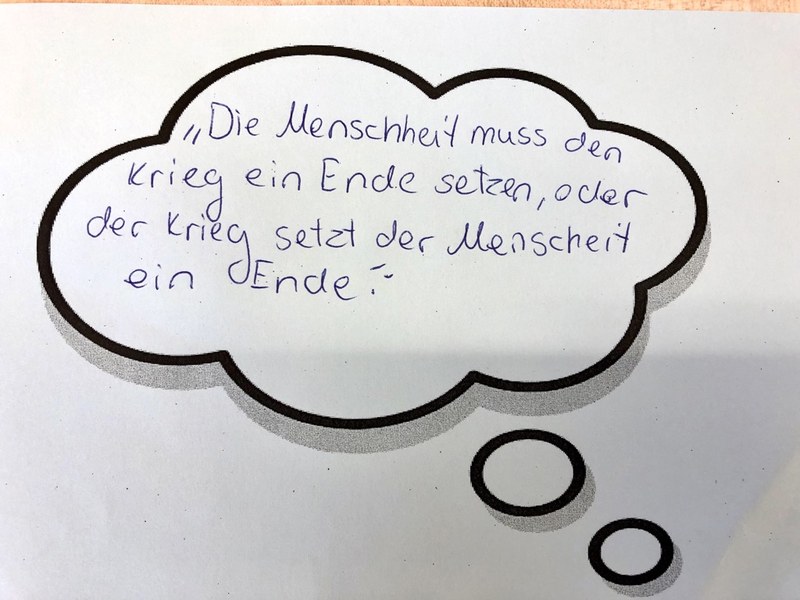 „Die Menschheit muss den
Krieg ein Ende setzen, oder
der Krieg setzt der Menscheit
ein Ende."